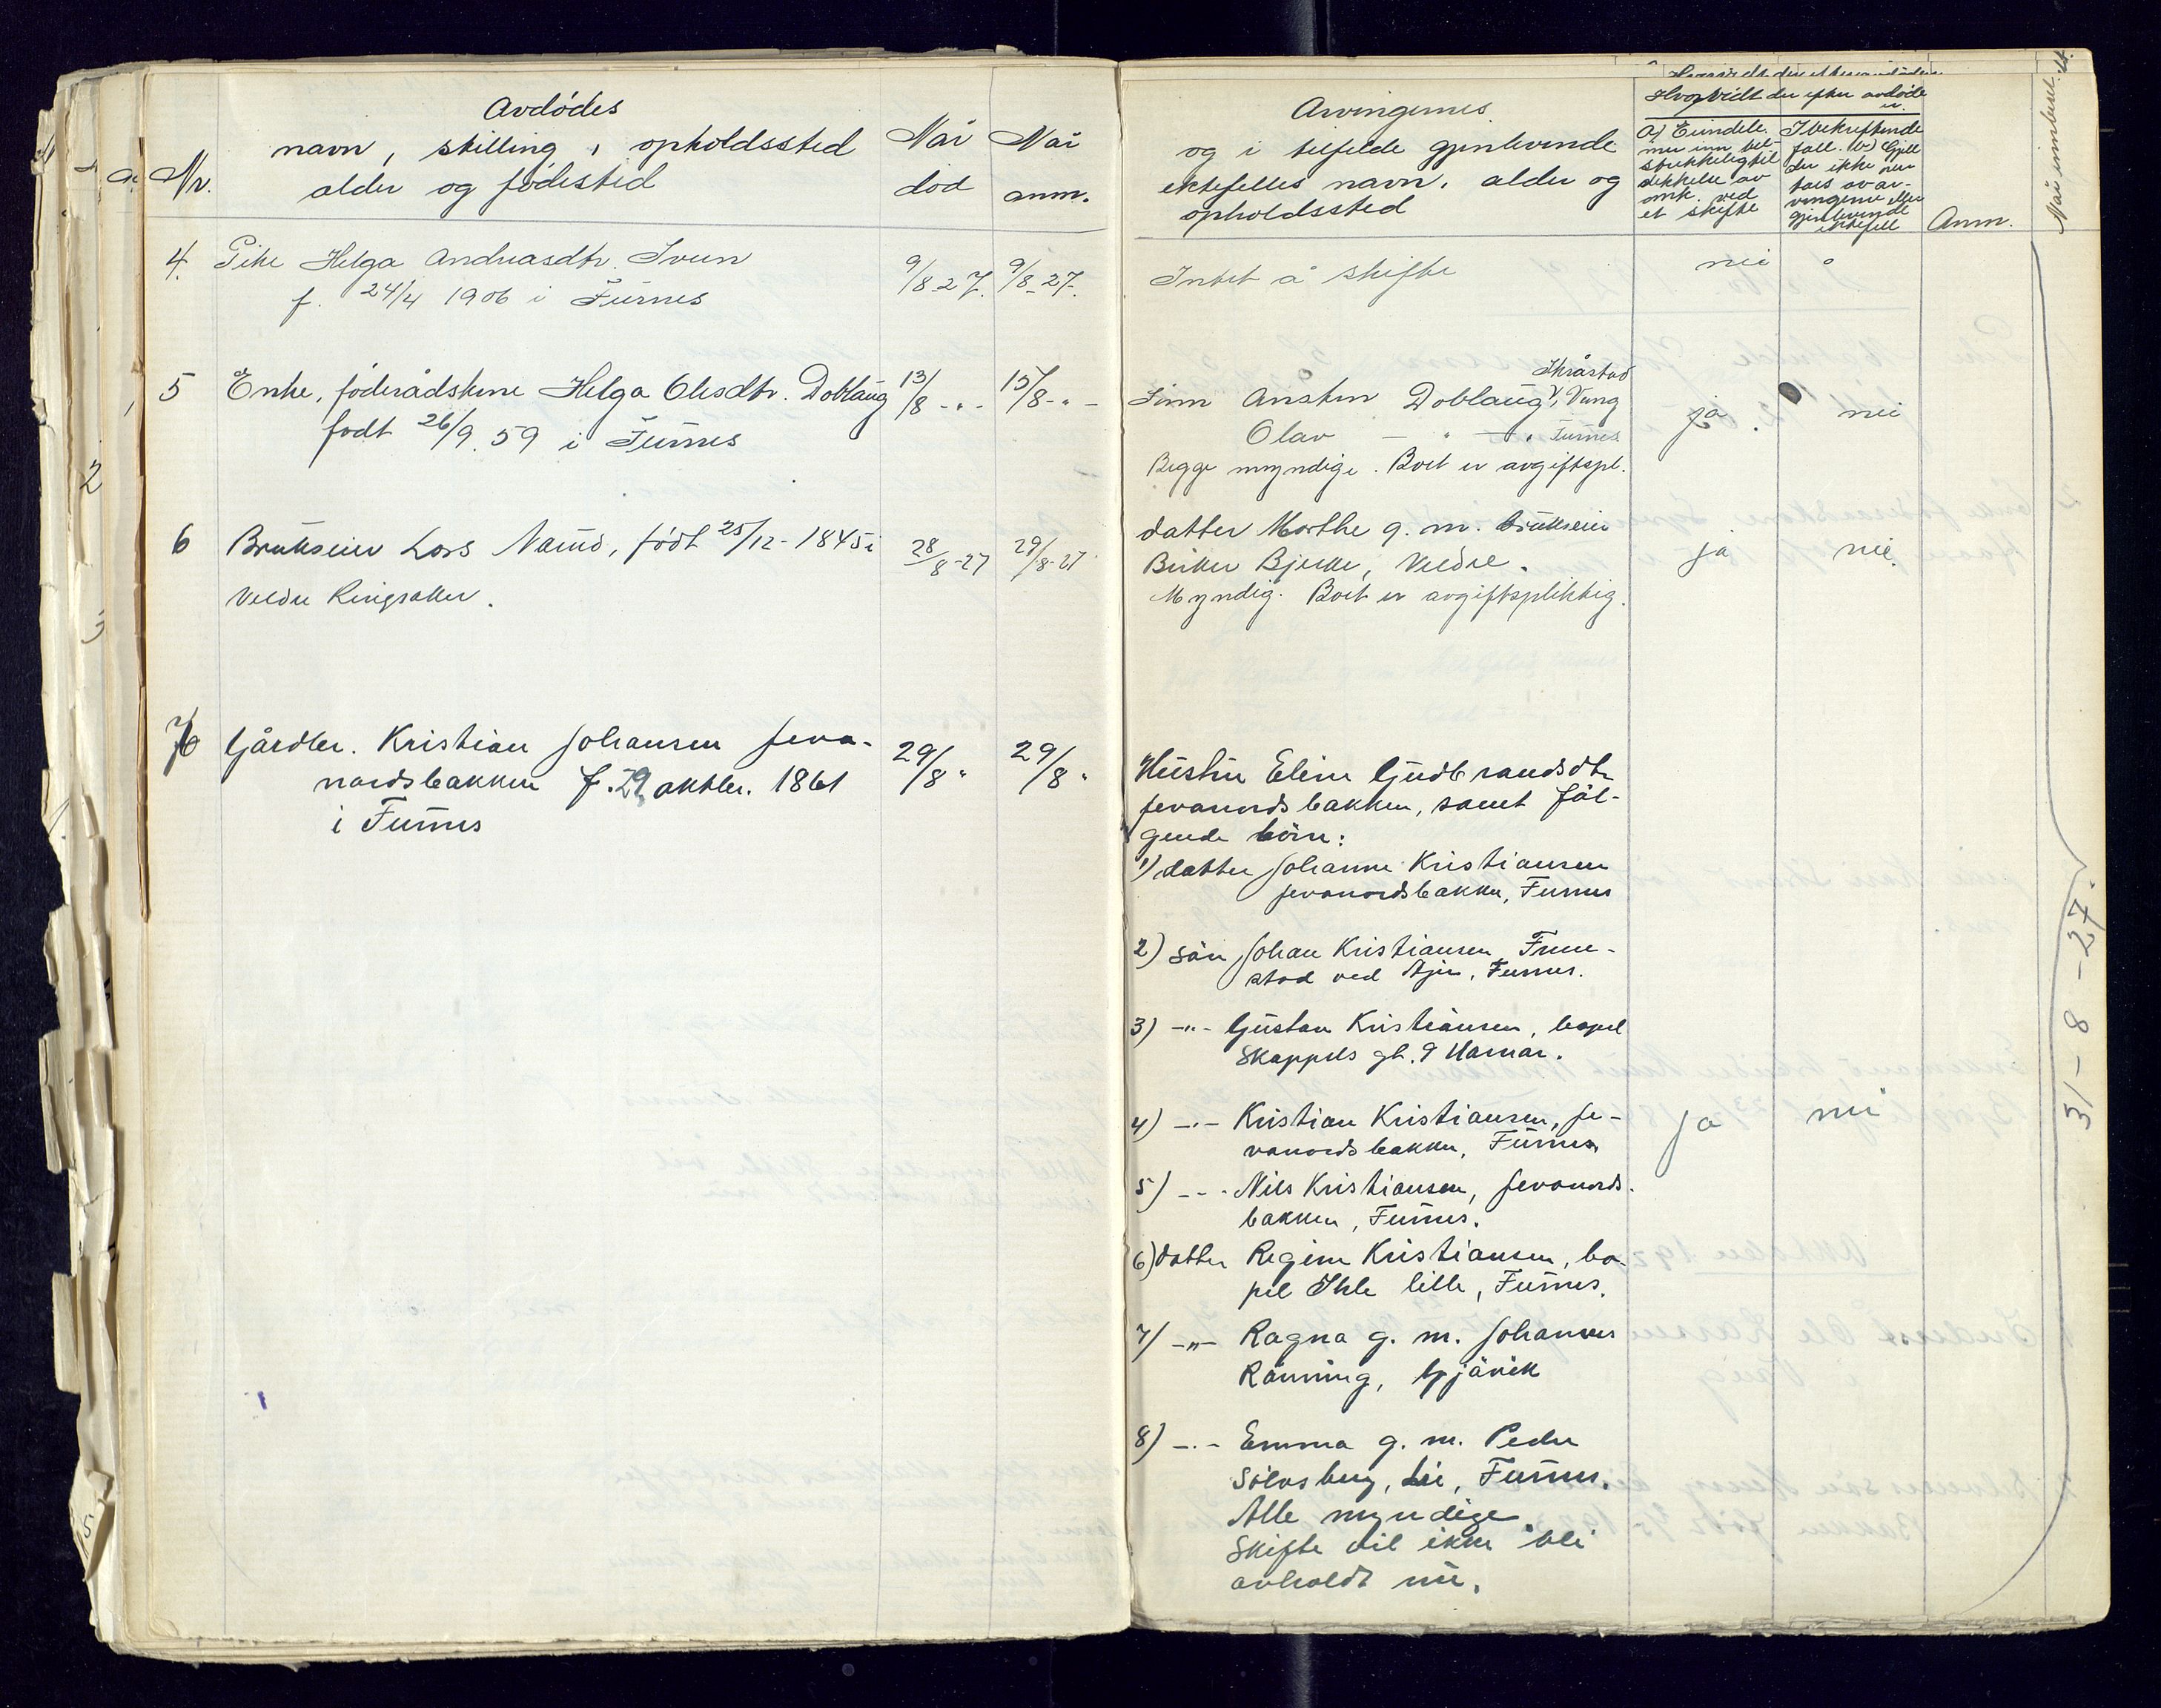 Avdødes
navn, stilling, opholdssted
alder og fødested
Nr.
Når
død
Når
anm.
4. Pike Helga Andreasdtr. Sveen 9/8-27. 9/8-27.
f. 24/4 1906 i Furnes
5 Enke, føderådskone Helga Olesdtr. Doblaug 13/8 - " - 15/8 - " -
født 26/9. 59 i Furnes
6 Brukseier Lars Narud, født 25/12 - 1845 i 28/8-27 29/8-27
Veldre Ringsaker.
7 Gårdbr. Kristian Johansen Jeva-
nordsbakken f. 29 oktbr. 1861 29/8 " 29/8 "
i Furnes
Arvingernes
og i tilfelde gjenlevende
ektefelles navn, alder og
opholdssted
Hvorvidt der efter avdøde
er
a) Eiendele
mer enn til-
strekkelig til
dekkelse av
omk. ved
et skifte
I bekreftende
fall. b) Gjeld
der ikke over
taes av ar-
vingerne eller
gjenlevende
ektefell
Anm.
Når innberet.
4.
Intet å skifte nei "
Skråstad
Sønn Anston Doblaug, Vang ja nei
Olav — " — , Furnes
Begge myndige. Boet er avgiftspl.
datter Marthe g. m. brukseier
Birker Bjerke, Veldre. ja nei
Myndig. Boet er avgiftspliktig.
Hustru Eline Gudbrandsdtr
Jevanordsbakken, samt føl-
gende børn:
1) datter Johanne Kristiansen
Jevanordsbakken, Furnes
2) søn Johan Kristiansen,
stad ved Furnes.
3) -"- Gustav Kristiansen, bopel
Skappels gt. 9 Hamar.
4) -"- Kristian Kristiansen, Je-
vanordsbakken, Furnes ja nei
5) -"- Nils Kristiansen, Jevanords-
bakken, Furnes.
6) datter Regine Kristiansen, bo-
pel Ihle lille, Furnes.
7) -"- Ragna g. m. Johannes
Rønning, Gjøvik
8) -"- Emma g. m. Peder
Sølvsberg, Lie, Furnes.
Alle myndige
Skifte vil ikke bli
avholdt nu.
31-8-27.